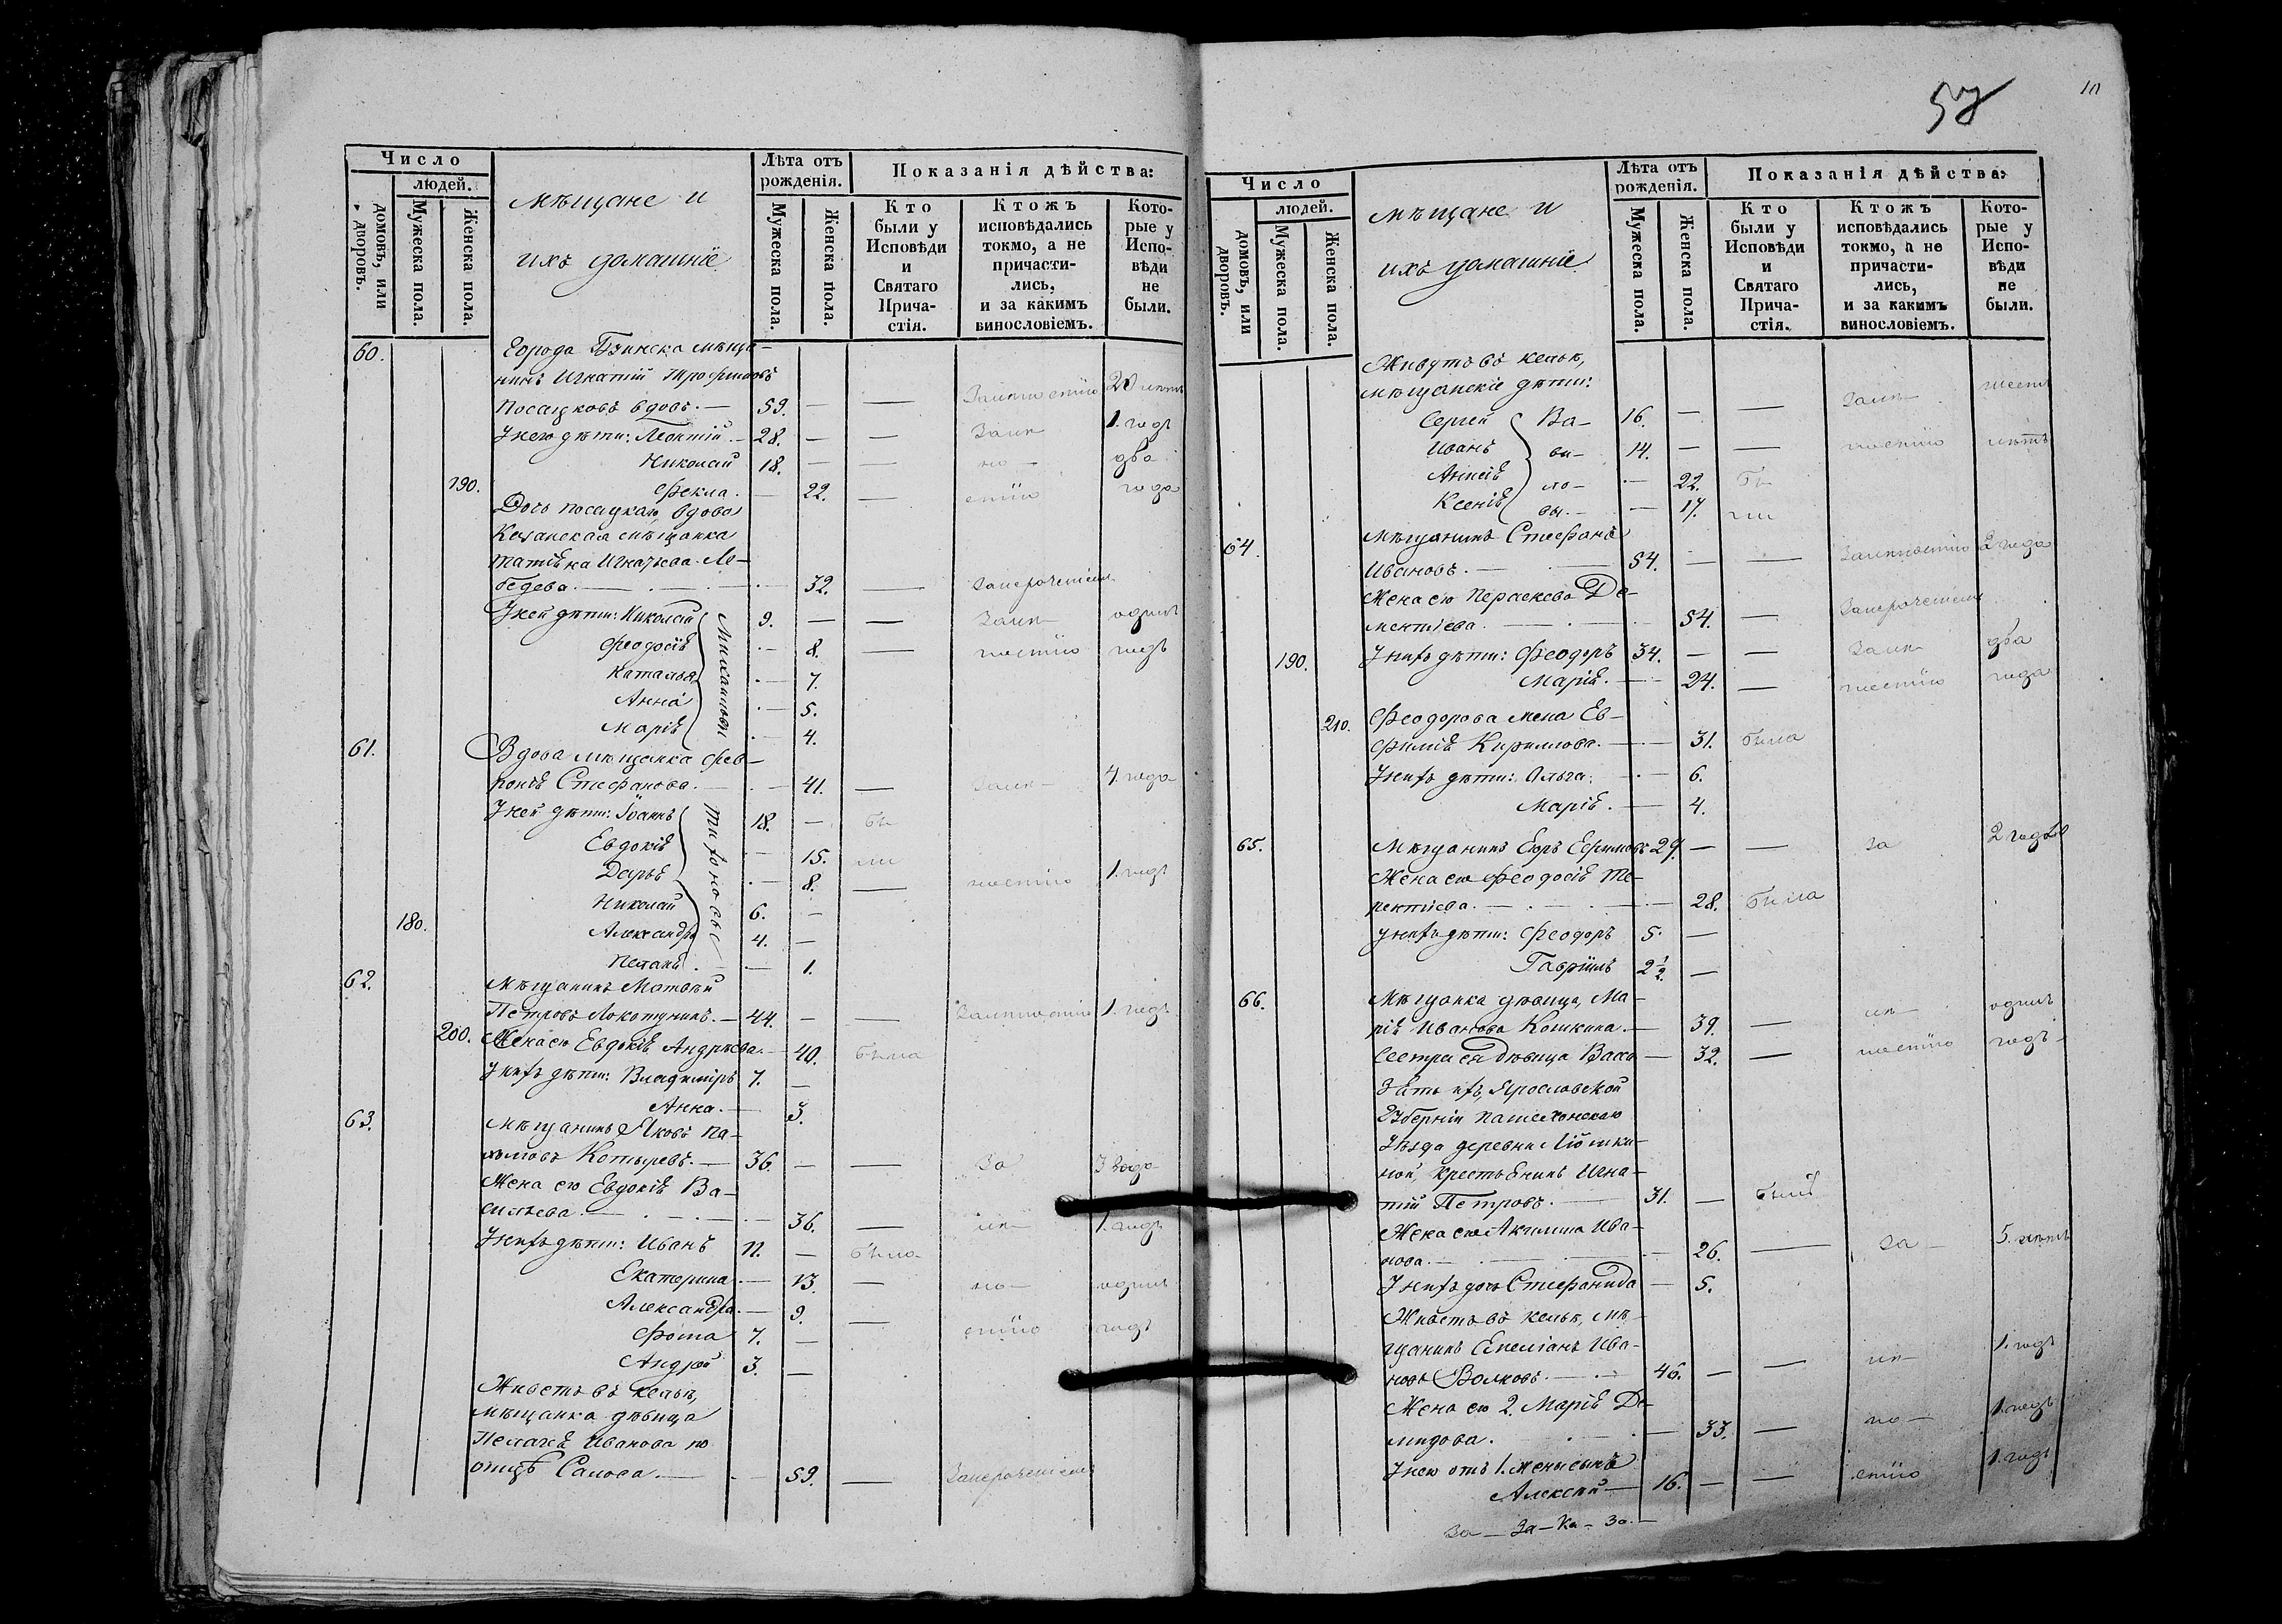 57
Число
людей.
домовъ, или дворовъ.
Мужеска пола.
Женска пола.
мѣщане и
ихъ домашніе.
Лѣта отъ рожденія.
Мужеска пола.
Женска пола.
Показанія дѣйства:
Кто были у Исповѣди и Святаго Прича-стія.
Ктожъ исповѣдались токмо, а не причасти-лись, и за какимъ винословіемъ.
Кото-рые у Испо-вѣди не были.
60. Города мѣща-
нинъ Игнатій Трофимовъ
Посацковъ вдовъ. — 59. — —
У него дѣти: Леонтій — 28. — — 1. годъ
Николай 18. — — два
190. Фекла. — 22. — года
Дочь посацкаго вдова
мѣщанка
Татьяна Игнатьева Ле-
бедева. — 32. —
У ней дѣти: Николай 9. — — одинъ
Феодосія — 8. — годъ
Наталья — 7.
Анна — 5.
Марія — 4.
61. Вдова мѣщанка Фев-
ронія Стефанова. — 41. — 4 года
У ней дѣти: Іоаннъ 18. — бы
Евдокія — 15. ли
Дарья — 8. — 1. годъ
Николай 6. —
180. Александръ 4. —
Пелагія — 1.
Тихоновы
62. Мѣщанинъ Матвѣй
Петровъ — 44. — — 1. годъ
200. Жена его Евдокія Андрѣева. — 40. была
У нихъ дѣти: Владимиръ 7. —
Анна. — 3.
63. Мѣщанинъ Яковъ Па-
хомовъ — 36. — — За 3 года
Жена его Евдокія Ва-
сильева. — 36. — 1. годъ
У нихъ дѣти: Иванъ 11. —
Екатерина. — 13. — одинъ
Александра. — 9. — годъ
Фома 7. —
Андрей 3. —
Живетъ въ кельѣ,
мѣщанка дѣвица
Пелагія Иванова по
отцѣ — 59. —
Число
людей.
домовъ, или дворовъ.
Мужеска пола.
Женска пола.
мѣщане и
ихъ домашніе.
Лѣта отъ рожденія.
Мужеска пола.
Женска пола.
Показанія дѣйства:
Кто были у Исповѣди и Святаго Прича-стія.
Ктожъ исповѣдались токмо, а не причасти-лись, и за какимъ винословіемъ.
Кото-рые у Испо-вѣди не были.
Живутъ въ кельѣ,
мѣщанскіе дѣти:
Сергей Ва- 16. — —
Иванъ ви- 14. — — лѣтъ
Анисія ло- — 22. бы
Ксенія вы. — 17. ли
64. Мѣщанинъ Стефанъ
Ивановъ. — 54. — — 2 года
Жена его Параскева Де-
ментіева. — 54. —
190. У нихъ дѣти: Феодоръ 34. — — два
Марія. — 24. — года
210. Феодорова жена Ев-
фимія Кириллова. — 31. была
У нихъ дѣти: Ольга. — 6.
Марія. — 4.
65. Мѣщанинъ Егоръ Ефимовъ 29. — — За 2 года
Жена его Феодосія Те-
рентіева. — 28. была
У нихъ дѣти: Феодоръ 5. —
Гавріилъ 2½. —
66. Мѣщанка дѣвица, Ма-
рія Иванова Кошкина. — 39. — одинъ
Сестра ея дѣвица Васса — 32. — годъ
Зять ихъ, Ярославской
губерніи Пашехонскаго
уѣзда деревни
крестьянинъ Игна-
тій Петровъ. — 31. — былъ
Жена его Акилина Ива-
нова. — 26. — За 5. лѣтъ
У нихъ дочь Стефанида — 5.
Живетъ въ кельѣ, мѣ-
щанинъ Емеліанъ Ива-
новъ Волковъ. — 46. — — 1. годъ
Жена его 2. Марія Де-
мидова. — 33. — 1. годъ
У него отъ 1. жены сынъ
Алексѣй — 16. — — 1. годъ